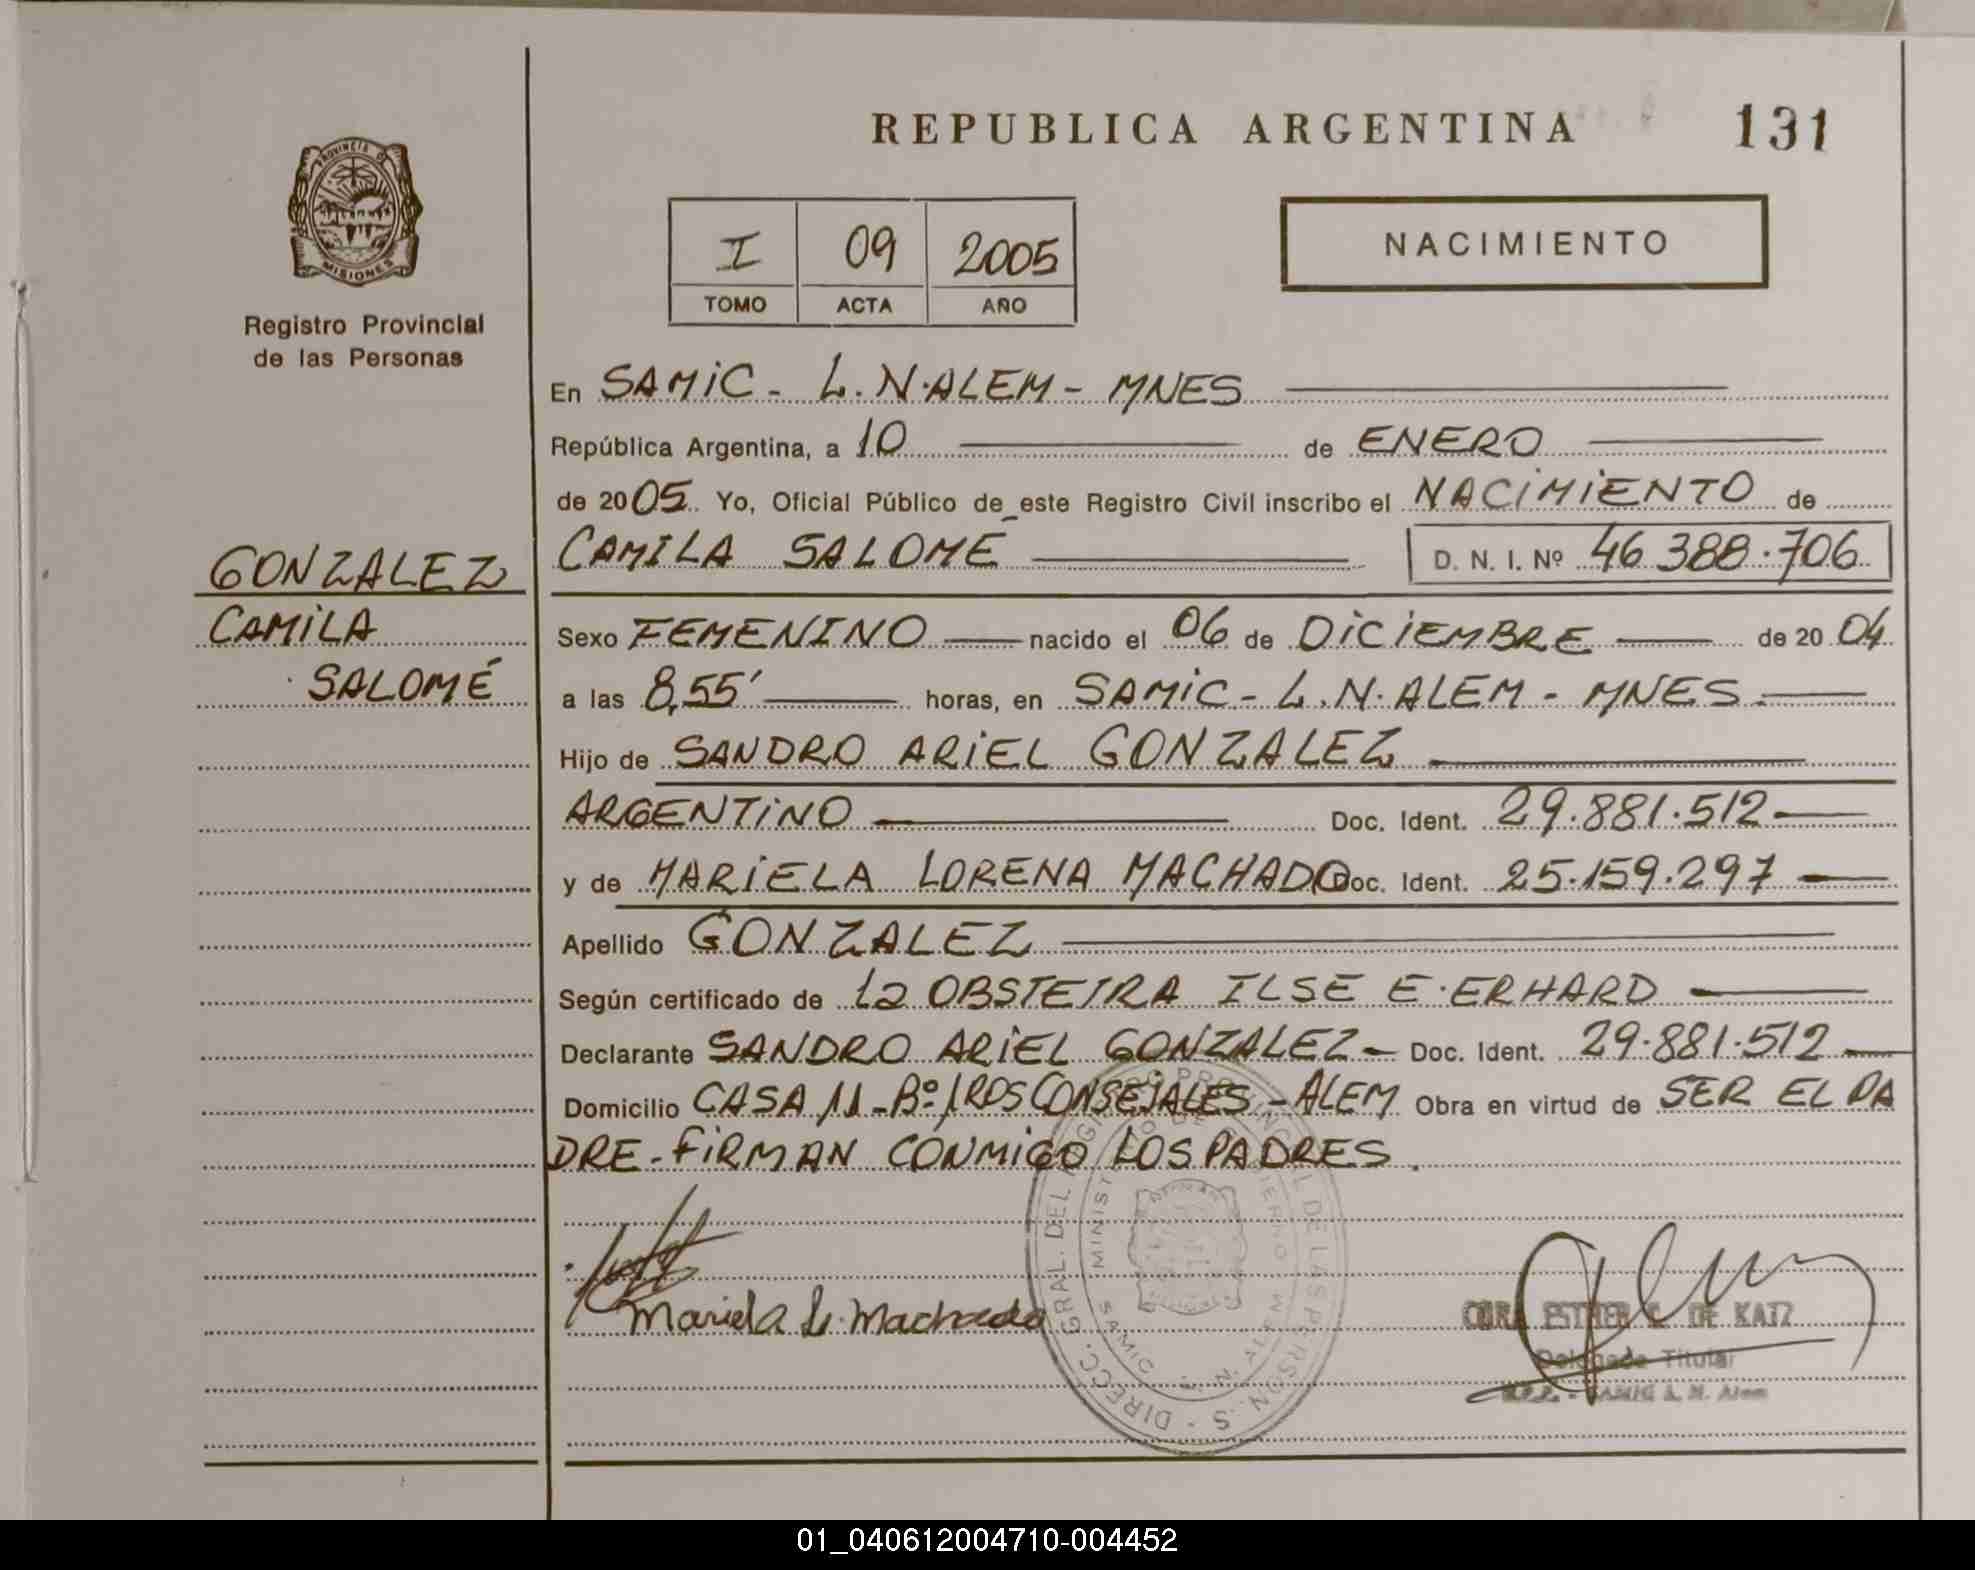 REPUBLICA ARGENTINA 131
PROVINCIA DE
MISIONES
Registro Provincial
de las Personas
I 09 2005
TOMO ACTA AÑO
NACIMIENTO
En SAMIC - L.N.ALEM - MNES
República Argentina, a 10 de ENERO
de 2005 Yo, Oficial Público de este Registro Civil inscribo el NACIMIENTO de
GONZALEZ
CAMILA
SALOMÉ
CAMILA SALOMÉ D. N. I. Nº 46.388.706
Sexo FEMENINO nacido el 06 de DICIEMBRE de 2004
a las 8,55' horas, en SAMIC - L.N.ALEM - MNES.
Hijo de SANDRO ARIEL GONZALEZ
ARGENTINO Doc. Ident. 29.881.512
y de MARIELA LORENA MACHADO Doc. Ident. 25.159.297
Apellido GONZALEZ
Según certificado de La OBSTETRA ILSE E. ERHARD
Declarante SANDRO ARIEL GONZALEZ - Doc. Ident. 29.881.512
Domicilio CASA 11 - Bº 1ROS CONSEJALES - ALEM Obra en virtud de SER EL PA
DRE - FIRMAN CONMIGO LOS PADRES.
Mariela L. Machado
ESTHER DE KATZ
Delegada Titular
SAMIC L. N. Alem
01_040612004710-004452